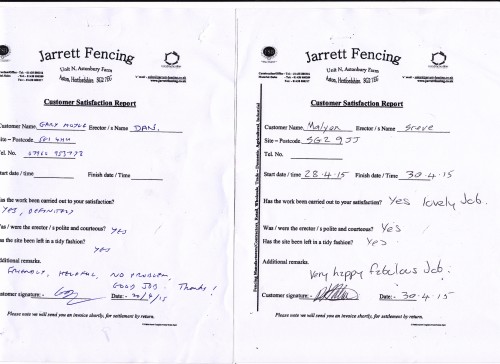 Jarrett Fencing
Unit N, Astonbury Farm
Aston, Hertfordshire, SG2 7EG
Customer Satisfaction Report
Customer Name Erector / s Name DAN.
Site – Postcode SG1 4HH
Tel. No.
Start date / time Finish date / Time
Has the work been carried out to your satisfaction?
YES, DEFINITELY
Was / were the erector / s polite and courteous? YES
Has the site been left in a tidy fashion?
YES
Additional remarks.
FRIENDLY, HELPFUL, NO PROBLEM,
GOOD JOB. Thanks!
Customer signature:- Date:- 30/4/15
Please note we will send you an invoice shortly, for settlement by return.
Jarrett Fencing
Unit N, Astonbury Farm
Aston, Hertfordshire, SG2 7EG
Customer Satisfaction Report
Customer Name Malyon Erector / s Name Steve
Site – Postcode SG2 9JJ
Tel. No.
Start date / time 28.4.15 Finish date / Time 30.4.15
Has the work been carried out to your satisfaction? Yes lovely Job.
Was / were the erector / s polite and courteous? Yes
Has the site been left in a tidy fashion? Yes.
Additional remarks.
Very happy fabulous Job.
Customer signature:- Date:- 30.4.15
Please note we will send you an invoice shortly, for settlement by return.